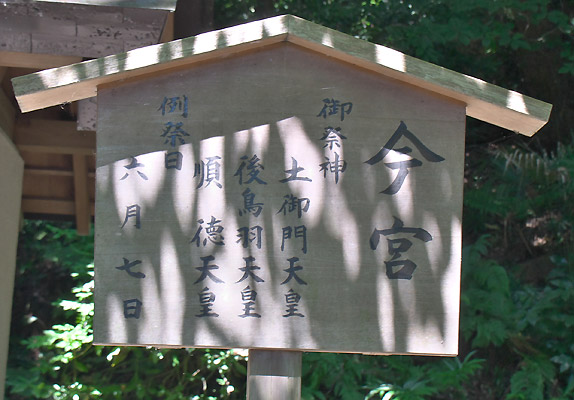 今宮
御祭神
土御門天皇
後鳥羽天皇
順徳天皇
例祭日
六月七日